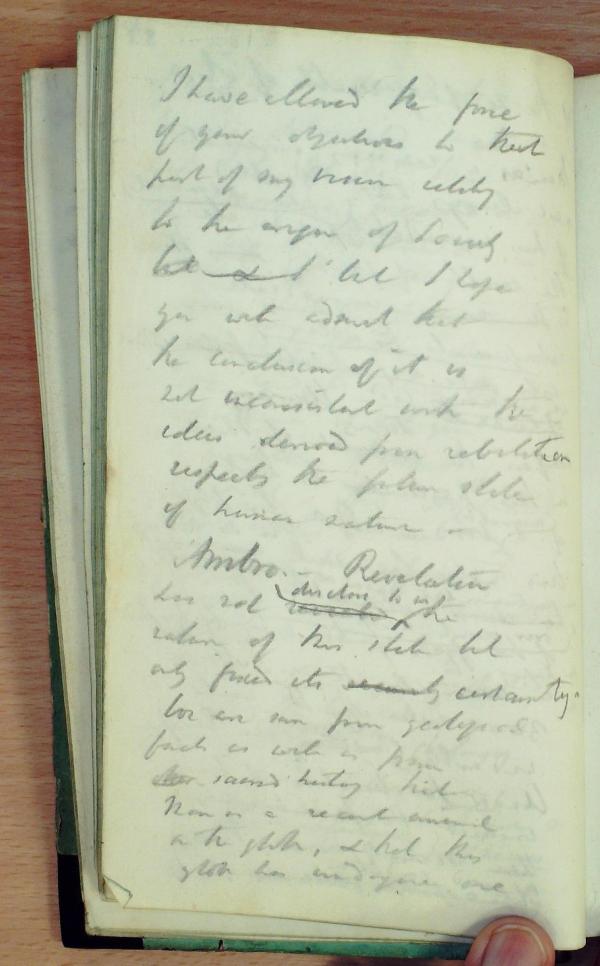 I have allowed the force
of your objections to that
part of my vision relating
to the origin of Society
but & I but I hope
you will admit that
the conclusion of it is
not inconsistent with the
ideas derived from revelation
respects the future state
of human nature -
Ambro. - Revelation
has not disclosed to us the
nature of this state but
only fixed its certainty.
We are sure from geological
facts as well as from
sacred history that
Man is a recent animal
on the globe, & that this
globe has undergone one